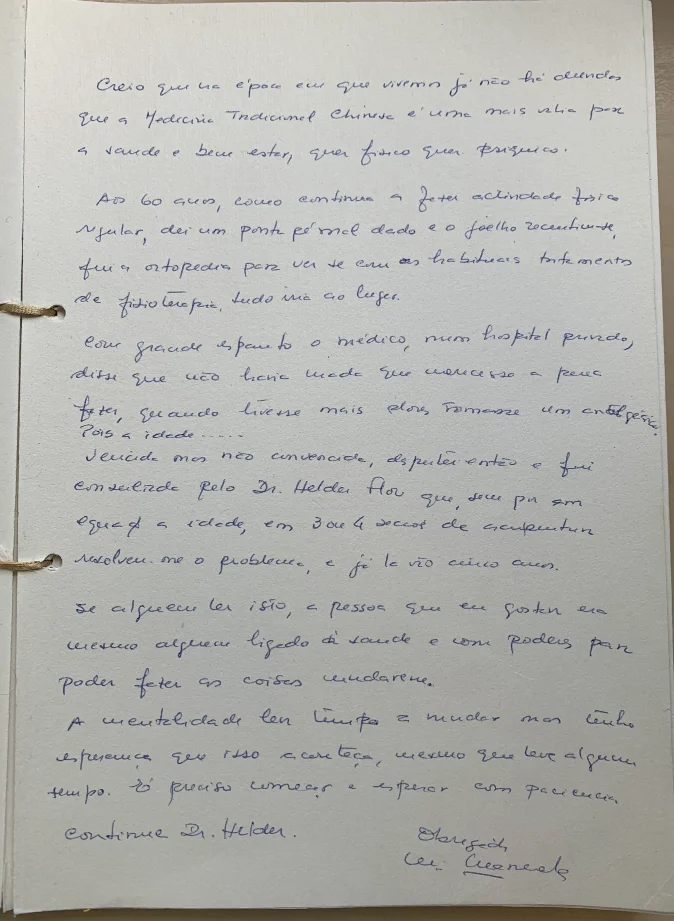 Creio que na época em que vivemos já não há dúvidas
que a Medicina Tradicional Chinesa é uma mais valia para
a saude e bem estar, quer fisico quer psiquico.
Aos 60 anos, como continuo a fazer actividade fisica
regular, dei um ponta pé mal dado e o joelho ressentiu-se,
fui a ortopedia para ver se com os habituais tratamentos
de fisioterapia, tudo iria ao lugar.
Com grande espanto o médico, num hospital privado,
disse que não havia nada que merecesse a pena
fazer, quando tivesse mais dores tomasse um analgésico.
Pois a idade.....
Vencida mas não convencida, então e fui
consultada pelo Dr. Helder Flor que, sem por em
equação a idade, em 3 ou 4 sessões de acupuntura
resolveu-me o problema, e já la vão cinco anos.
Se alguem ler isto, a pessoa que eu gostava era
mesmo alguem ligado à saude e com poderes para
poder fazer as coisas mudarem.
A mentalidade leva tempo a mudar mas tenho
esperança que isso aconteça, mesmo que leve algum
tempo. É preciso começar e esperar com paciencia
Continue Dr. Helder.
Obrigada